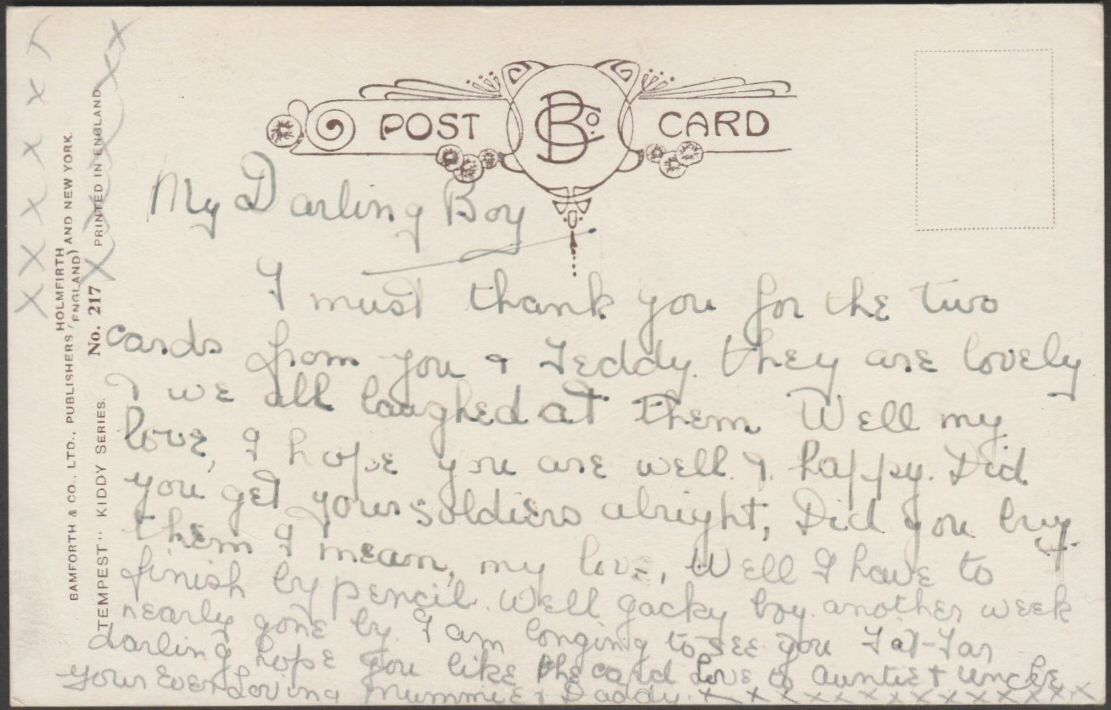 POST BCo. CARD
My Darling Boy
I must thank you for the two
cards from you & Teddy. they are lovely
& we all laughed at them Well my
love, I hope you are well & happy. Did
you get your soldiers alright, Did you buy
them I mean, my love, Well I have to
finish by pencil. Well gacky boy another week
nearly gone by. I am longing to see you Tat-Tar
darling hope you like the card Love to Auntie & Uncle
Your Ever Loving Mummie & Daddy. x x x x x x x x x x x x
BAMFORTH & CO., LTD., PUBLISHERS, HOLMFIRTH (ENGLAND) AND NEW YORK.
"TEMPEST" KIDDY SERIES. No. 217 PRINTED IN ENGLAND
x x x x x x
x x x x x